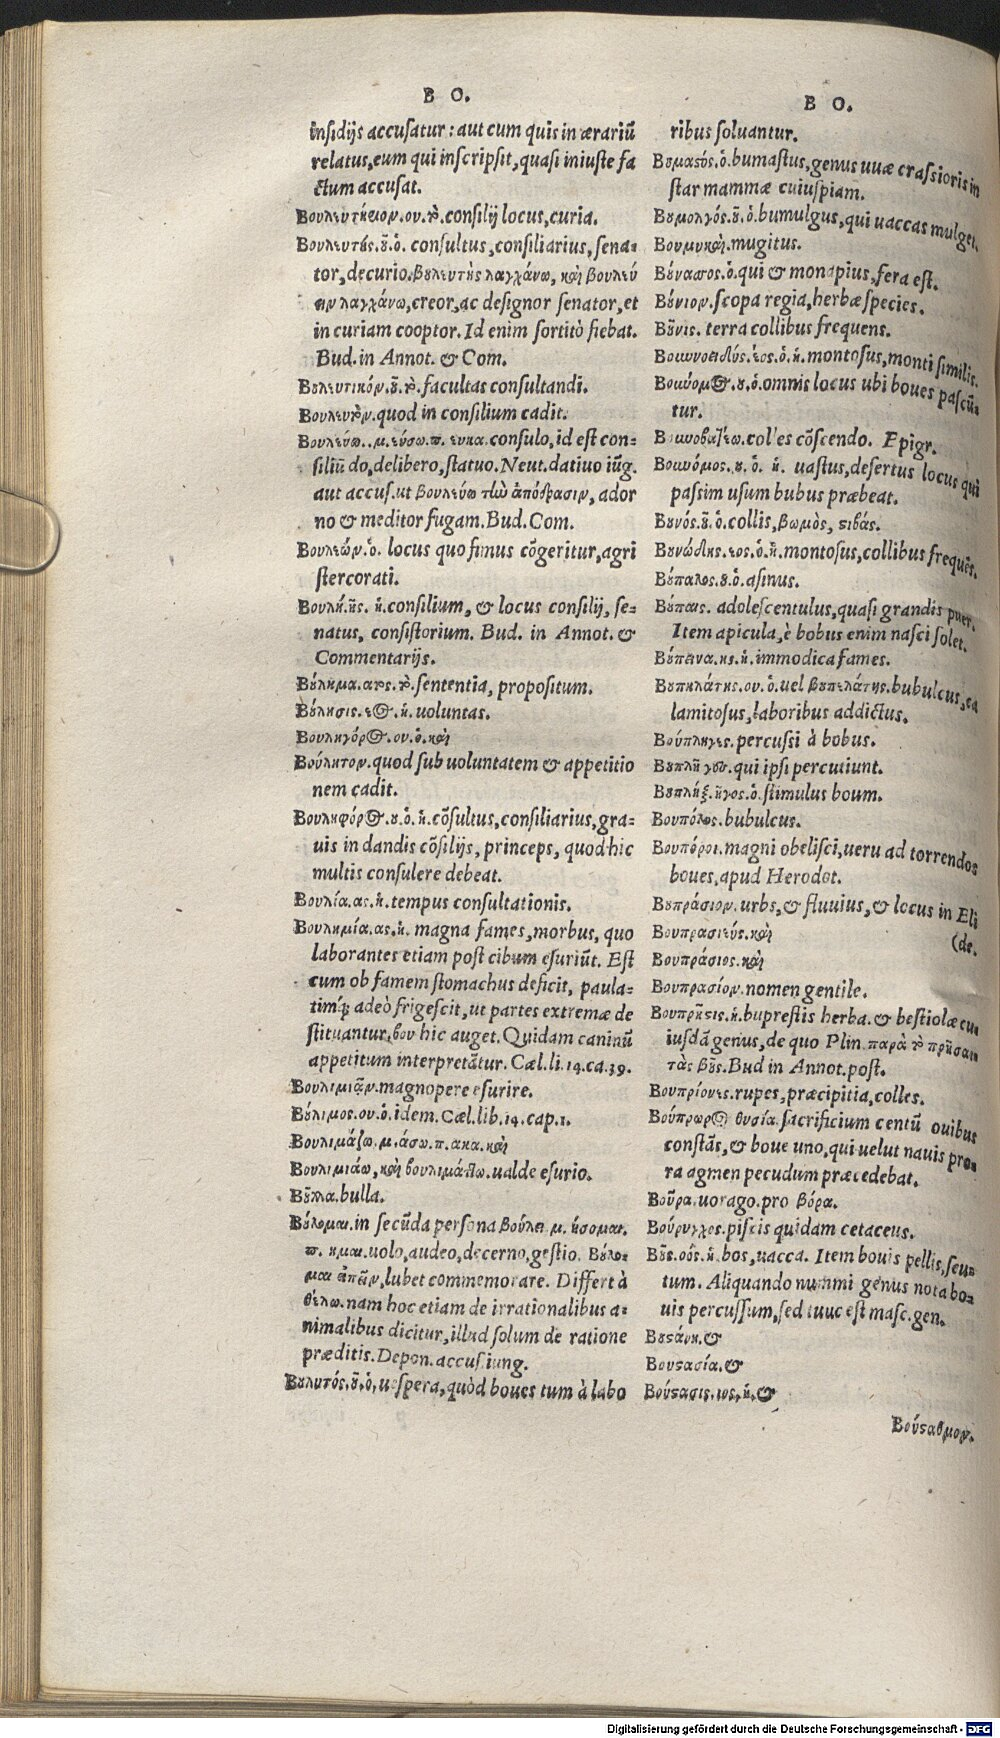 B O.
insidijs accusatur: aut cum quis in ærariũ
relatus, eum qui inscripsit, quasi iniuste fa
ctum accusat.
Βουλευτήειον. ου. τὸ. consilij locus, curia.
Βουλευτὴς. ȣ͂. ὁ. consultus, consiliarius, sena-
tor, decurio. βȣλευτὴς λαγχάνω, καὶ βουλεύ
ειν λαγχάνω, creor, ac designor senator, et
in curiam cooptor. Id enim sortitò fiebat.
Bud. in Annot. & Com.
Βȣλευτικόν. ȣ͂. τὸ. facultas consultandi.
Βουλευτὸν. quod in consilium cadit.
Βουλεύω. μ. εύσω. π. ευκα. consulo, id est con-
siliũ do, delibero, statuo. Neut. datiuo iũg.
aut accus. ut βουλεύω τὼ ἀπόδρασιν, ador
no & meditor fugam. Bud. Com.
Βουλεών. ὁ. locus quo fimus cõgeritur, agri
stercorati.
Βουλή. ῆς. ἡ. consilium, & locus consilij, se-
natus, consistorium. Bud. in Annot. &
Commentarijs.
Βȣ́λημα. ατος. τὸ. sententia, propositum.
Βȣ́λησις. εος. ἡ. uoluntas.
Βουληγόρος. ου. ὁ. καὶ
Βούλητον. quod sub uoluntatem & appetitio
nem cadit.
Βουληφόρος. ȣ. ὁ. ἡ. cõsultus, consiliarius, gra-
uis in dandis cõsilijs, princeps, quod hic
multis consulere debeat.
Βουλία. ας. ἡ. tempus consultationis.
Βουλημία. ας. ἡ. magna fames, morbus, quo
laborantes etiam post cibum esuriũt. Est
cum ob famem stomachus deficit, paula-
timq́; adeò frigescit, ut partes extremæ de
stituantur, βου hic auget. Quidam caninũ
appetitum interpretãtur. Cæl. li. 14. ca. 39.
Βουλιμιᾷν. magnopere esurire.
Βȣ́λιμος. ου. ὁ. idem. Cæl. lib. 14. cap. 1.
Βουλιμάζω. μ. άσω. π. ακα. καὶ
Βουλιμιάω, καὶ βουλιμάττω. ualde esurio.
Βȣ͂λλα. bulla.
Βȣ́λομαι. in secũda persona βούλει. μ. ήσομαι.
π. ημαι. uolo, audeo, decerno, gestio. Βȣ́λο-
μαι εἰπεῖν, lubet commemorare. Differt à
θέλω. nam hoc etiam de irrationalibus a-
nimalibus dicitur, illud solum de ratione
præditis. Depon. accus. iung.
Βȣλυτός. ȣ͂. ὁ. uespera, quòd boues tum à labo
B O.
ribus soluantur.
Βȣμαςός. ὁ. bumastus, genus uuæ crassioris in
star mammæ cuiuspiam.
Βȣμολγός. ȣ͂. ὁ. bumulgus, qui uaccas mulget.
Βουμυκαὶ. mugitus.
Βȣ́νασος. ὁ. qui & monapius, fera est.
Βȣ́νιον. scopa regia, herbæ species.
Βȣ͂νις. terra collibus frequens.
Βουνοειδής. έος. ὁ. ἡ. montosus, monti similis.
Βουνόμος. ȣ. ὁ. omnis locus ubi boues pascũ-
tur.
Βουνοβατέω. colles cõscendo. Epigr.
Βουνόμος. ȣ. ὁ. ἡ. uastus, desertus locus qui
passim usum bubus præbeat.
Βȣνός. ȣ͂. ὁ. collis, βωμὸς, ςιβάς.
Βȣνώδης. εος. ὁ. ἡ. montosus, collibus frequẽs.
Βȣ́παλος. ȣ. ὁ. asinus.
Βȣ́παις. adolescentulus, quasi grandis puer.
Item apicula, è bobus enim nasci solet.
Βȣ́πεινα. ης. ἡ. immodica fames.
Βȣπηλάτης. ου. ὁ. uel βȣπελάτης. bubulcus, ca
lamitosus, laboribus addictus.
Βούπληγες. percussi à bobus.
Βȣπλῆγες. qui ipsi percutiunt.
Βȣπλήξ. ῆγος. ὁ. stimulus boum.
Βουπόλος. bubulcus.
Βουπόροι. magni obelisci, ueru ad torrendos
boues, apud Herodot.
Βȣπράσιον. urbs, & fluuius, & locus in Eli
(de.
Βουπρασιεύς. καὶ
Βουπράσιος. καὶ
Βουπρασίον. nomen gentile.
Βουπρῆςις. ἡ. buprestis herba. & bestiolæ cu-
iusdã genus, de quo Plin. παρὰ τὸ πρῆσαι
τὰς βȣ͂ς. Bud in Annot. post.
Βουπρίονες. rupes, præcipitia, colles.
Βούπρωρος θυσία. sacrificium centũ ouibus
constãs, & boue uno, qui uelut nauis pro-
ra agmen pecudum præcedebat.
Βοῦρα. uorago. pro βόρα.
Βούρυγχος. piscis quidam cetaceus.
Βȣ͂ς. οός. ἡ. bos, uacca. Item bouis pellis, scu-
tum. Aliquando nummi genus nota bo-
uis percussum, sed tunc est masc. gen.
Βȣςάνη. &
Βουςασία. &
Βούςασις. ιος. ἡ. &
Βούςαθμον.
Digitalisierung gefördert durch die Deutsche Forschungsgemeinschaft - DFG